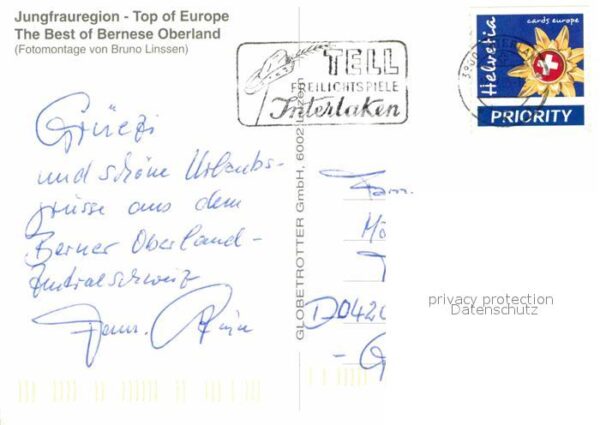 Jungfrauregion - Top of Europe
The Best of Bernese Oberland
(Fotomontage von Bruno Linssen)
TELL
FREILICHTSPIELE
Interlaken
Helvetia
cards europe
PRIORITY
Grüezi
und schöne Urlaubs-
grüsse aus dem
Berner Oberland-
Zentralschweiz
Fam.
GLOBETROTTER GmbH, 6002 Luzern
Fam.
Mö
D042
- G
privacy protection
Datenschutz